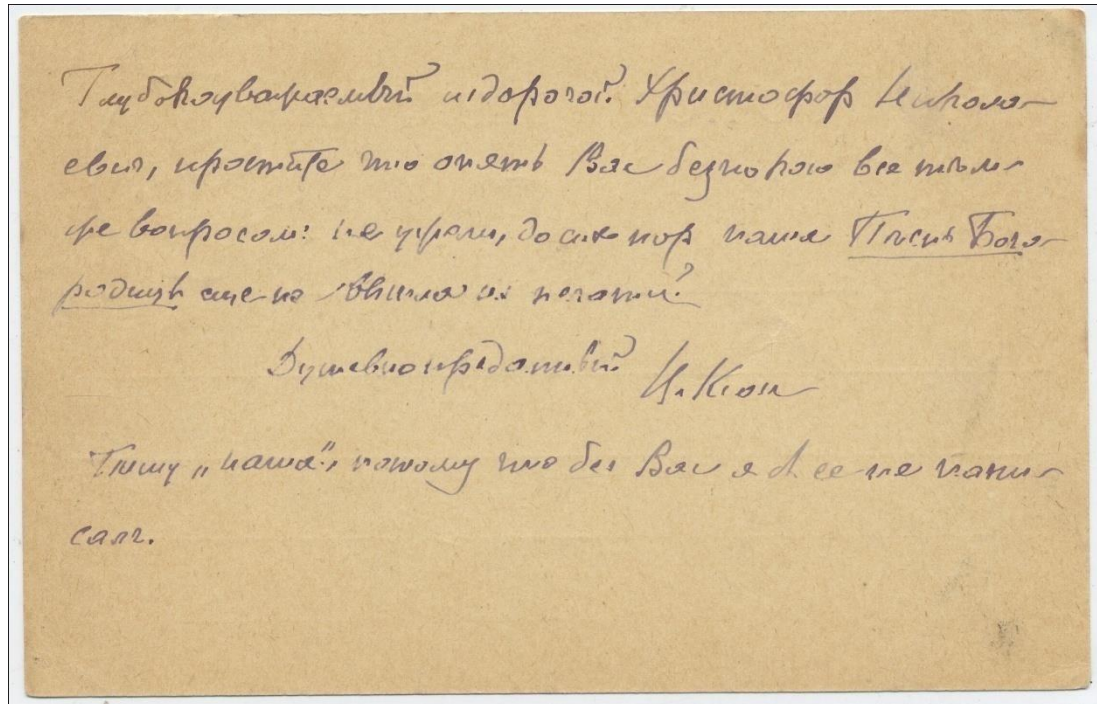 Глубокоуважаемый и дорогой Христофор Никола-
евич, простите что опять Вас безпокою все тѣм-
же вопросом: не ужели, до сих пор наша Пѣснь Бого-
родицѣ еще не вышла из печати?
Душевнопреданный Ц. Кюи
Пишу „наша“, потому что без Вас я б ее не напи-
салъ.